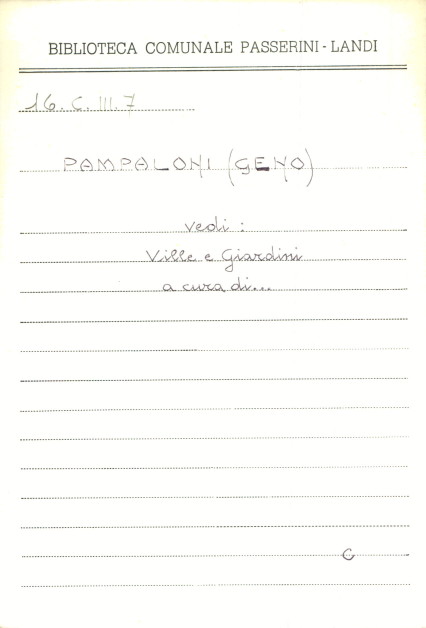 BIBLIOTECA COMUNALE PASSERINI - LANDI
16. C. III. 7
PAMPALONI (GENO)
vedi :
Ville e Giardini
a cura di...
C